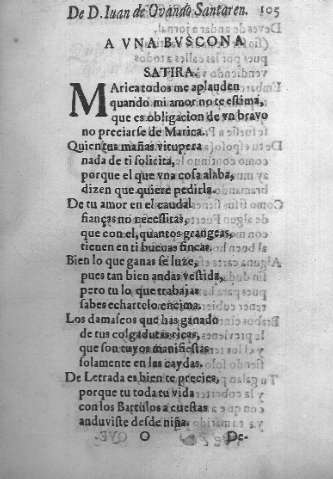 De D. Iuan de Ovando Santaren. 105
A VNA BVSCONA
SATIRA.
Marica todos me aplauden
quando mi amor no te estima,
que es obligacion de vn bravo
no preciarse de Marica.
Quien tus mañas vitupera
nada de ti solicita,
porque el que vna cosa alaba,
dizen que quiere pedirla.
De tu amor en el caudal
fianças no necessitas,
que con el, quantos grangeas,
tienen en ti buenas fincas.
Bien lo que ganas se luze,
pues tan bien andas vestida,
pero tu lo que trabajas
sabes echartelo encima.
Los damascos que has ganado
de tus colgaduras ricas,
que son tuyos manifiestas
solamente en las caydas.
De Letrada es bien te precies,
porque tu toda tu vida
con los Bartulos a cuestas
anduviste desde niña.
O De-